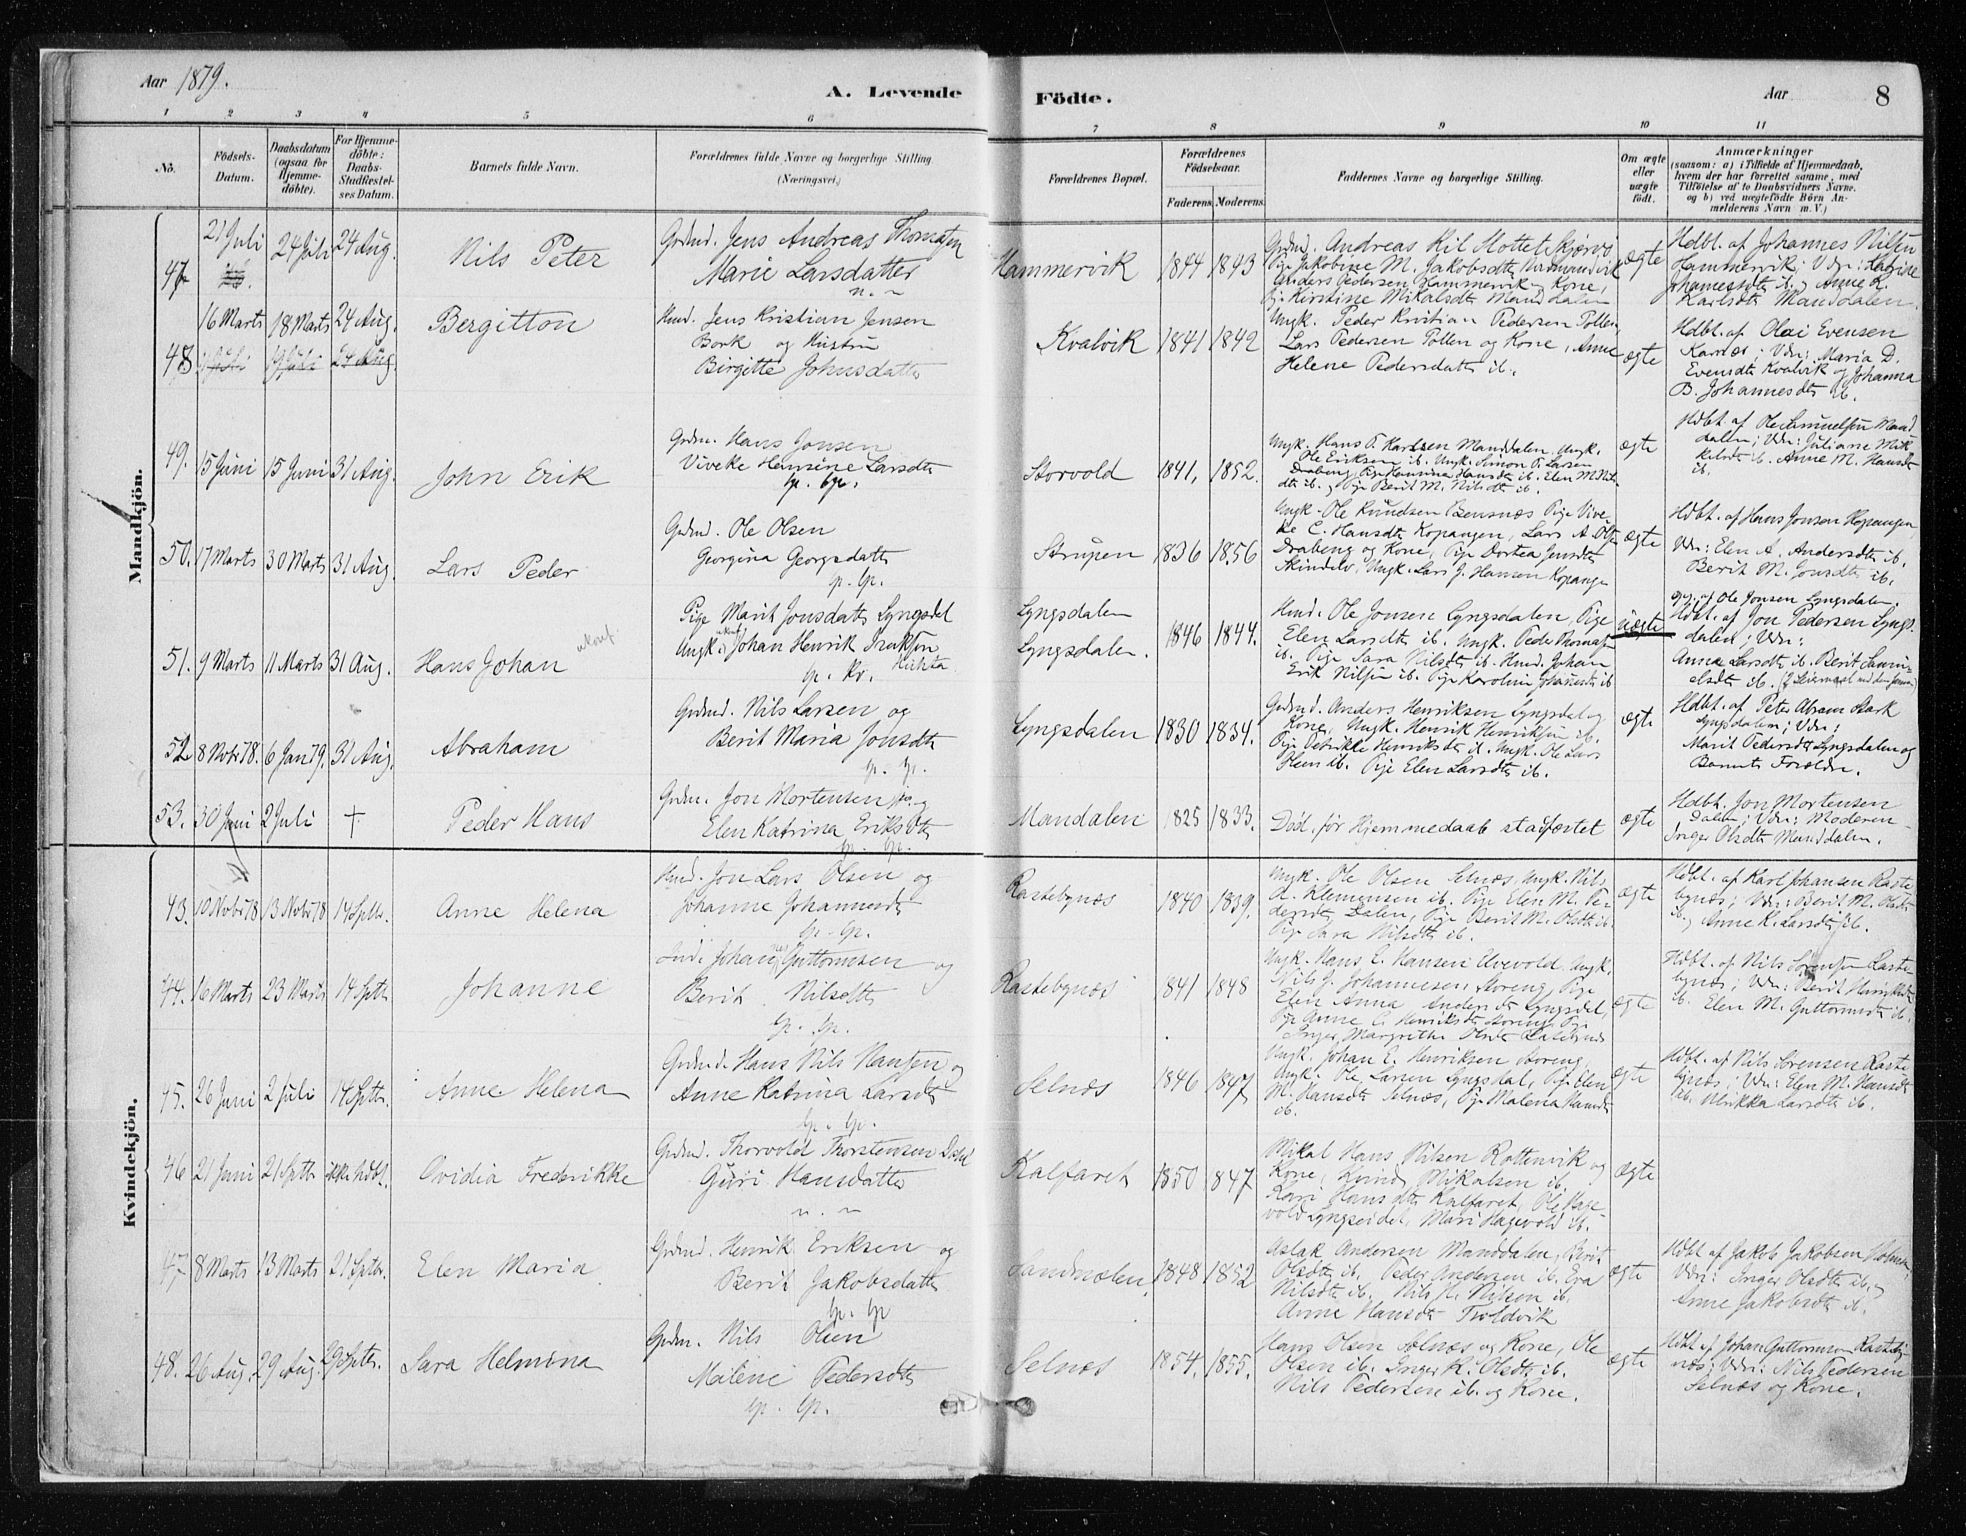 Aar 1879.
A. Levende
Födte.
Aar
8
1 2 3 4 5 6 7 8 9 10 11
No.
Födsels-
Datum.
Daabsdatum
(ogsaa for
Hjemme-
döbte).
For Hjemme-
döbte:
Daabs-
Stadfæstel-
ses Datum.
Barnets fulde Navn.
Forældrenes fulde Navne og borgerlige Stilling
(Næringsvei.)
Forældrenes Bopæl.
Forældrenes
Födselsaar.
Faderens. Moderens.
Faddernes Navne og borgerlige Stilling.
Om ægte
eller
uægte
født.
Anmærkninger
(saasom: a) i Tilfælde af Hjemmedaab,
hvem der har forrettet samme, med
Tilföielse af to Daabsvidners Navne.
og b) ved uægtefödte Börn An-
melderens Navn m. V.)
Mandkjön.
47
21 Juli
24 Juli
24 Aug.
Nils Peter
Jens Andreas Thomesen
Marie Larsdatter
Hammervik
1844
1843
Pige Jakobine M. Jakobsdtr
Anders Pedersen Hammervik og Kone,
Kirstine Mikalsdtr Manddalen
ægte
Hdbt. af Johannes Nilsen
Hammervik; Vdn: Katrine
Johannesdtr ib. og Anne K.
Karlsdtr Manddalen.
48
16 Marts
18 Marts
24 Aug.
Bergitton
Jens Kristian Jensen
Bork og Hustru
Birgitte Johnsdatter
Kvalvik
1841
1842
Ungk. Peder Kristian Pedersen Pollen
Lars Pedersen Pollen og Kone, Anne
Helene Pedersdatter ib.
ægte
Hdbt. af Olai Evensen
Karnæs; Vdn: Maria D.
Evensdtr Kvalvik og Johanna
B. Johannesdtr ib.
49.
15 Juni
15 Juni
31 Aug.
John Erik
Grdm. Hans Jonsen
Viveke Hensine Larsdtr
Storvold
1841.
1852.
Ungk. Hans P. Karlsen Manddalen, Ungk.
Ole Eriksen ib. Ungk. Simon P. Larsen
ægte
Hdbt. af Ole Samuelsen Mand
dalen; Vdn: Juliane Mik
kelsdtr ib. Anne M. Hansdtr
ib.
50.
17 Marts
30 Marts
31 Aug.
Lars Peder
Grdmd. Ole Olsen
Georgina Georgsdatter
Strupen
1836
1856
Ungk. Ole Knudsen Bensnæs Pige Vive
ke C. Hansdtr Kopangen, Lars A. Ols
Drabeng og Kone, Pige Dortea Jensdtr
Skindelv, Ungk. Lars J. Hansen Kopange
ægte
Hdbt. af Hans Jonsen Kopangen,
Vdn: Elen A. Andersdtr ib.
Berit M. Jonsdtr ib.
51.
9 Marts
11 Marts
31 Aug.
Hans Johan
Pige Marit Jonsdatter Lyngsdal
Ungk. Johan Henrik Isaksen
Lyngsdalen
Lyngsdalen.
1846
1844.
Hmd. Ole Jonsen Lyngsdalen, Pige
Elen Larsdtr ib. Ungk. Peder Thomas
ib. Pige Sara Nilsdtr ib. Hmd. Johan
Erik Nilsen ib. Pige Karoline Johansdtr ib
uægte
opg. af Ole Jonsen Lyngsdalen.
Hdbt. af Jon Pedersen Lyngs
dalen; Vdn:
Anna Larsdtr ib. Berit Samu
elsdtr ib.
52
8 Novbr 78.
6 Jan 79.
31 Aug.
Abraham
Grdmd. Nils Larsen og
Berit Maria Jonsdtr
Lyngsdalen
1830
1834.
Grdmd. Anders Henriksen Lyngsdal og
Kone, Ungk. Henrik Henriksen ib.
Pige Henrikke Henriksdtr ib. Ungk. Ole Lars
Olsen ib. Pige Elen Larsdtr ib.
ægte
Hdbt. af Peter Abram Stark
Lyngsdalen; Vdn:
Marit Pedersdtr Lyngsdalen og
Barnets Forældre.
53.
30 Juni
2 Juli
†
Peder Hans
Grdm. Jon Mortensen og
Elen Katrina Eriksdtr
Mandalen
1825
1833.
Död før Hjemmedaab stadfæstet
ægte
Hdbt. Jon Mortensen
Dalen; Vdn: Moderen
Inger Olsdtr Manddalen.
Kvindekjön.
43.
10 Novbr 78
13 Novbr 78
14 Sptbr.
Anne Helena
Hmd. Jon Lars Olsen og
Johanne Johannesdtr
Rastebynæs
1840
1839.
Ungk. Ole Olsen Selnæs, Ungk. Nils
A. Klemensen ib. Pige Elen M. Pe
dersdtr Dalen, Pige Berit M. Olsdtr ib.
Pige Sara Nilsdtr ib.
ægte
Hdbt. af Karl Johansen Raste
bynæs; Vdn: Berit M. Olsdtr
ib. Anne K. Larsdtr ib.
44.
16 Marts
23 Marts
14 Sptbr
Johanne
Johan Guttormsen og
Berit Nilsdtr
Rastebynæs
1841
1848
Ungk. Hans E. Hansen Urevold, Ungk.
Nils J. Johannesen Storeng, Pige
Elen Anna Andersdtr Lyngsdal,
Pige Anne C. Henriksdtr Storeng, Pige
ægte
Hdbt. af Nils Sörensen Raste
bynæs; Vdn: Berit Henriksdtr
ib. Elen M. Guttormsdtr ib.
45.
26 Juni
2 Juli
14 Sptbr.
Anne Helena
Grdmd. Hans Nils Hansen og
Anne Katrina Larsdtr
Selnæs
1846
1847
Ungk. Johan E. Henriksen Storeng,
Ungk. Ole Larsen Lyngsdal, Pige Elen
M. Hansdtr Selnæs, Pige Malena Hansdtr
ib.
ægte
Hdbt. af Nils Sörensen Raste
bynæs; Vdn: Elen M. Hansdtr
ib. Ulrikka Larsdtr ib.
46
21 Juni
21 Sptbr
ikke hdbt.
Ovidia Frederikke
Grdmd. Thorvold Thorstensen
Guri Hansdatter
Kalfaret
1850
1847
Mikal Hans Nilsen Rottenvik og
Kone, Mikalsen ib.
Kari Hansdtr Kalfaret, Ole Hage
vold Lyngseidet, Mari Hagevold ib.
ægte
47
8 Marts
13 Marts
21 Sptbr.
Elen Maria
Grdmd. Henrik Eriksen og
Berit Jakobsdatter
Sandnælen.
1848
1852
Aslak Andersen Manddalen, Berit
Olsdtr ib. Peder Andersen ib. Eva
Nilsdtr ib. Nils N. Nilsen ib.
Anne Hansdtr Troldvik
ægte
Hdbt af Jakob Jakobsen Holmen,
Vdn: Inger Olsdtr ib. og
Anne Jakobsdtr ib.
48.
26 Aug.
29 Aug.
29 Sptbr.
Sara Helmina
Grdm. Nils Olsen
Malene Pedersdtr
Selnæs
1854.
1855.
Hans Olsen Selnæs og Kone, Ole
Olsen ib. Inger K. Olsdtr ib.
Nils Pedersen ib. og Kone.
ægte
Hdbt af Johan Guttormsen Rasteby
næs; Vdn: Nils Pedersen
Selnæs og Kone.